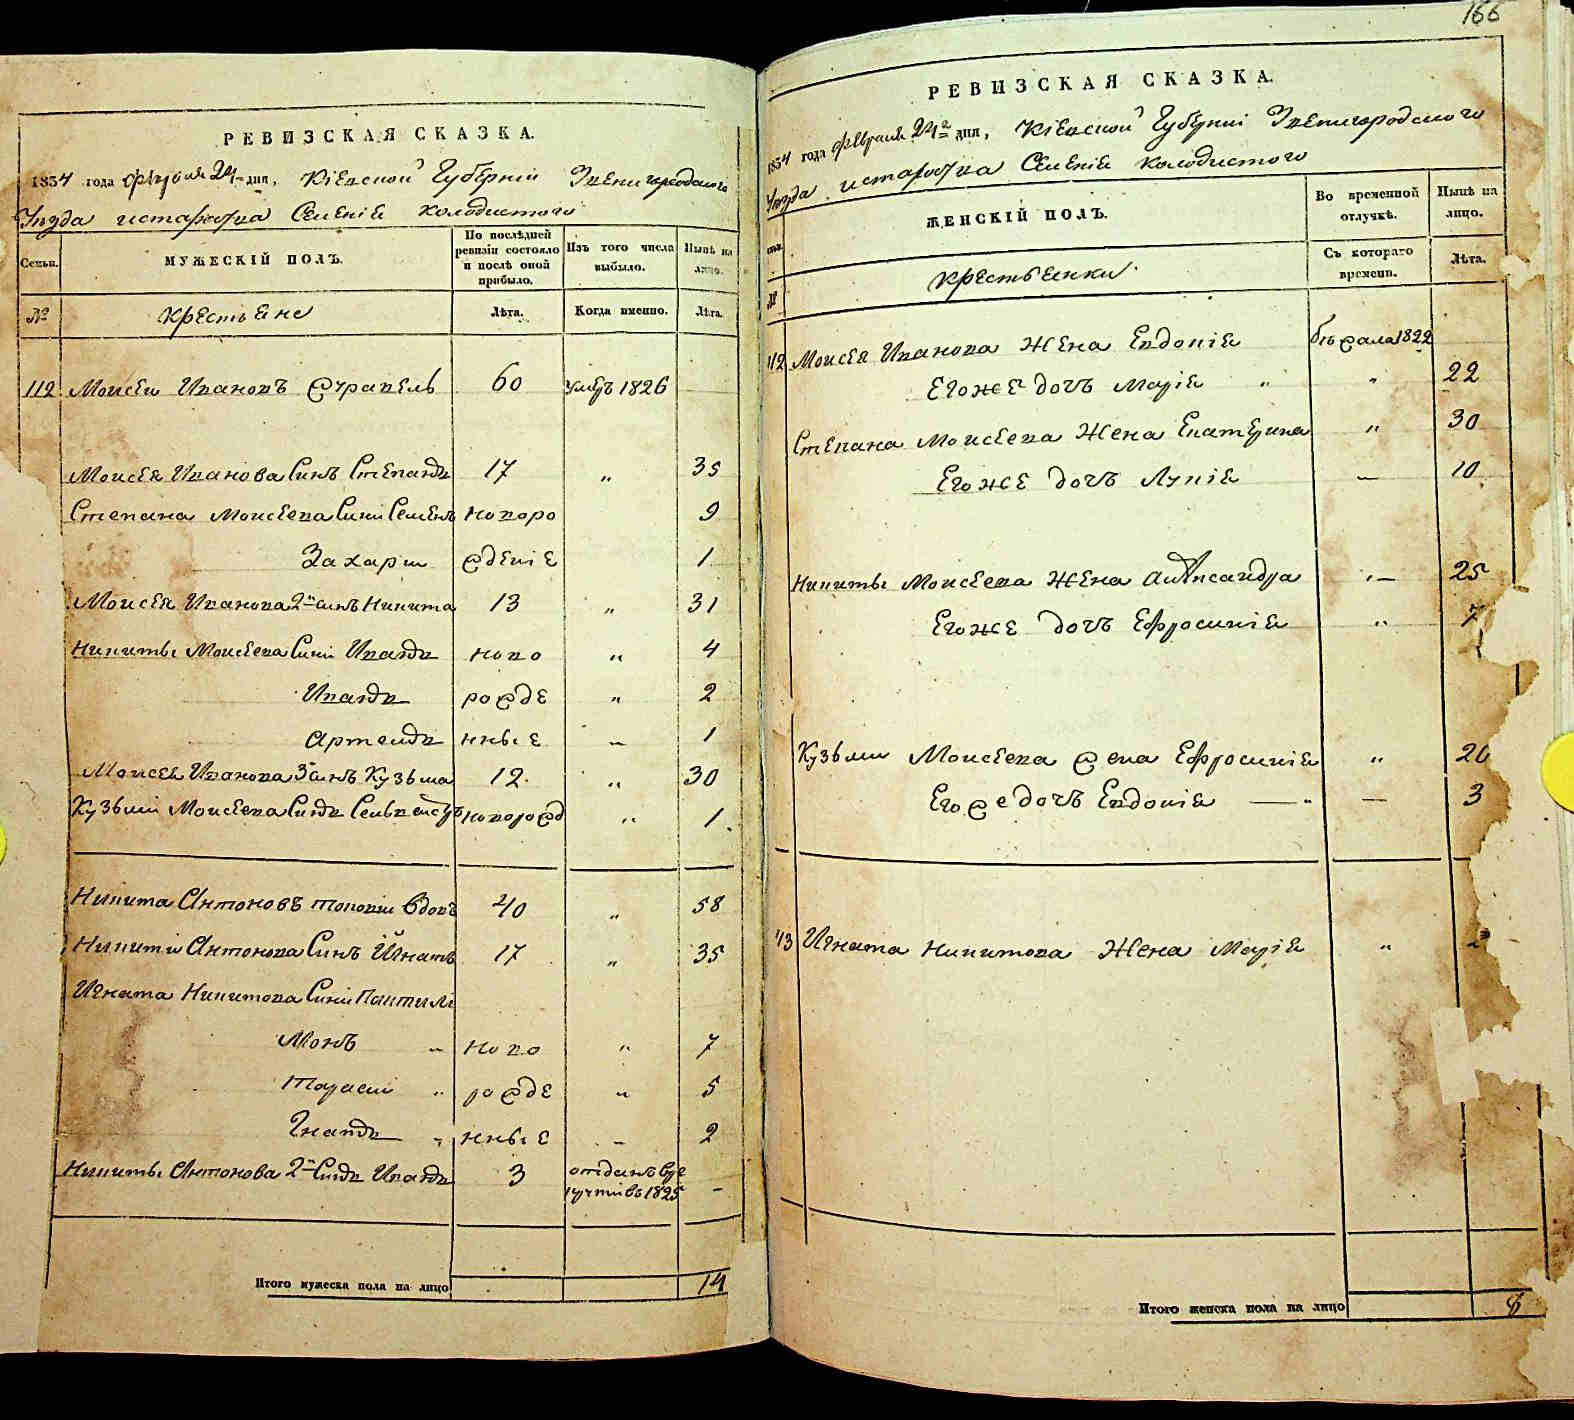 РЕВИЗСКАЯ СКАЗКА.
1834 года февраля 24 дня, Кіевской Губерніи Звенигородского
Уезда Селеніе Колодистого
Семьи.
МУЖЕСКІЙ ПОЛЪ.
По послѣдней ревизіи состояло и послѣ оной прибыло.
Изъ того числа выбыло.
Нынѣ на лицо.
№
крестьяне
Лѣта.
Когда именно.
Лѣта.
112 Моисеи Ивановъ 60 умеръ 1826
Моисея Иванова Синъ Степанъ 17 " 35
Степана Моисеева Сини Семенъ новоро 9
Захари жденіе 1
Моисея Иванова 2й синъ Никита 13 " 31
Никиты Моисеева Сини Иванъ ново " 4
Иванъ рожде " 2
Артемъ нные " 1
Моисея Иванова 3й синъ Кузьма 12 " 30
Кузьми Моисеева Синъ новорожд " 1
Никита Антоновъ вдовъ 40 " 58
Никити Антонова Синъ Игнатъ 17 " 35
Игната Никитова Сини Пантили
Монъ " ново " 7
Тараси " рожде " 5
Гнатъ " нные " 2
Никиты Антонова 2й Синъ Иванъ 3 отданъ въ
въ 1825 -
Итого мужеска пола на лицо 14
166
РЕВИЗСКАЯ СКАЗКА.
1834 года февраля 24 дня, Кіевской Губерніи Звенигородского
Уезда Селеніе Колодистого
ЖЕНСКІЙ ПОЛЪ.
Во временной отлучкѣ.
Нынѣ на лицо.
№
крестьянки
Съ котораго времени.
Лѣта.
112 Моисея Иванова Жена Евдокія бежала 1822
Егоже дочъ Марія " " 22
Степана Моисеева Жена Екатерина " 30
Егоже дочъ Лукія — 10
Никиты Моисеева Жена Александра " 25
Егоже дочъ Ефросинія " 7
Кузьми Моисеева жена Ефросинія " 20
Егоже дочъ Евдокія — 3
113 Игната Никитова Жена Марія "
Итого женска пола на лицо 8